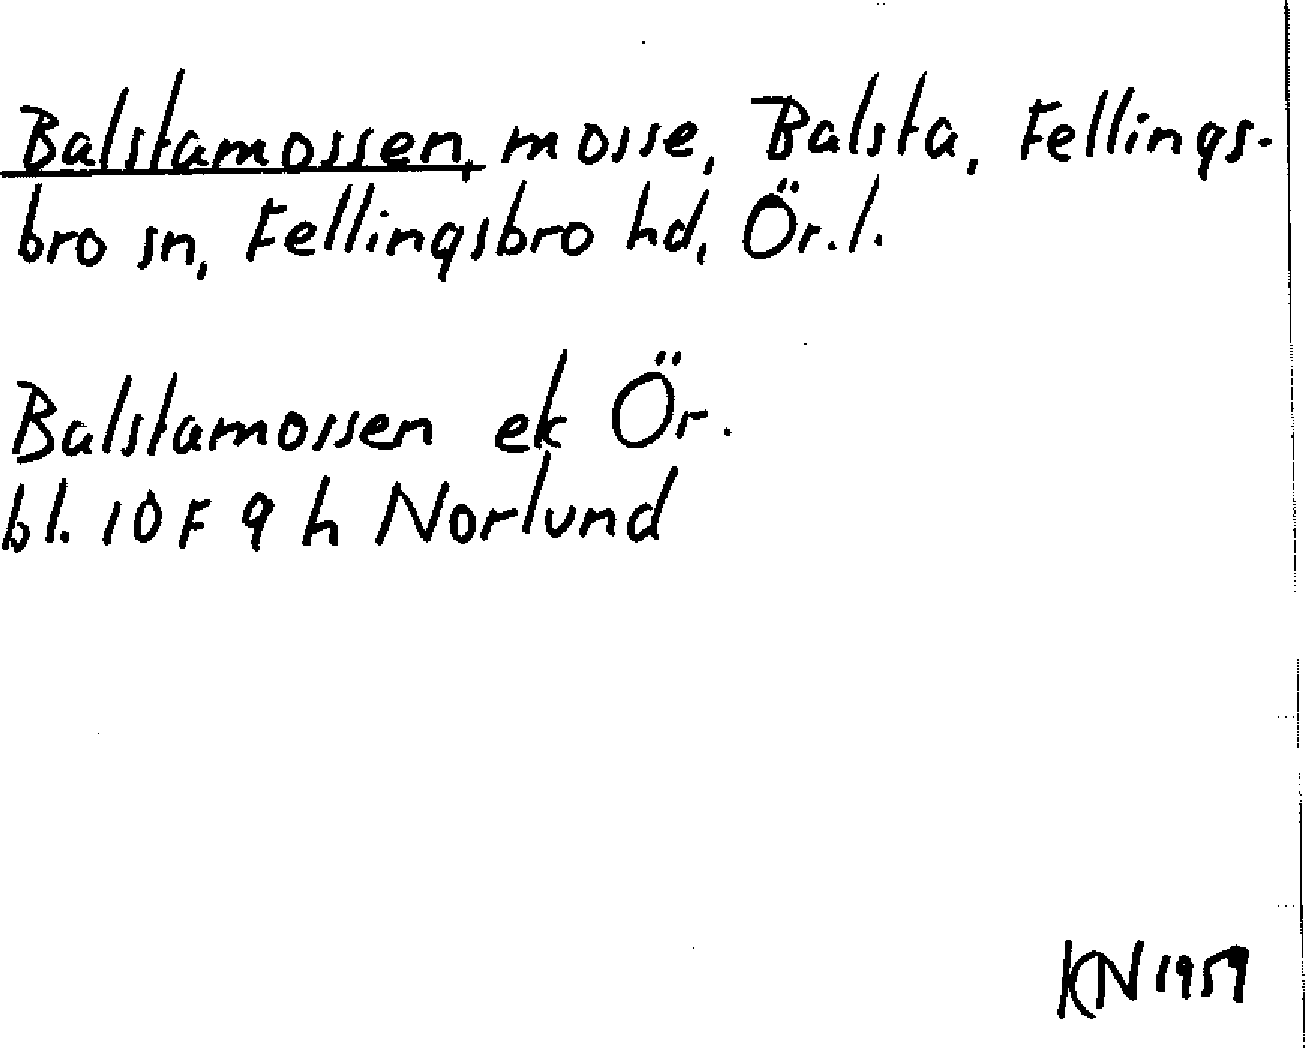 Balstamossen, mosse, Balsta, Fellings-
bro sn, Fellingsbro hd, Ör. l.
Balstamossen ek Ör.
bl. 10F 9 h Norlund
KN 1959